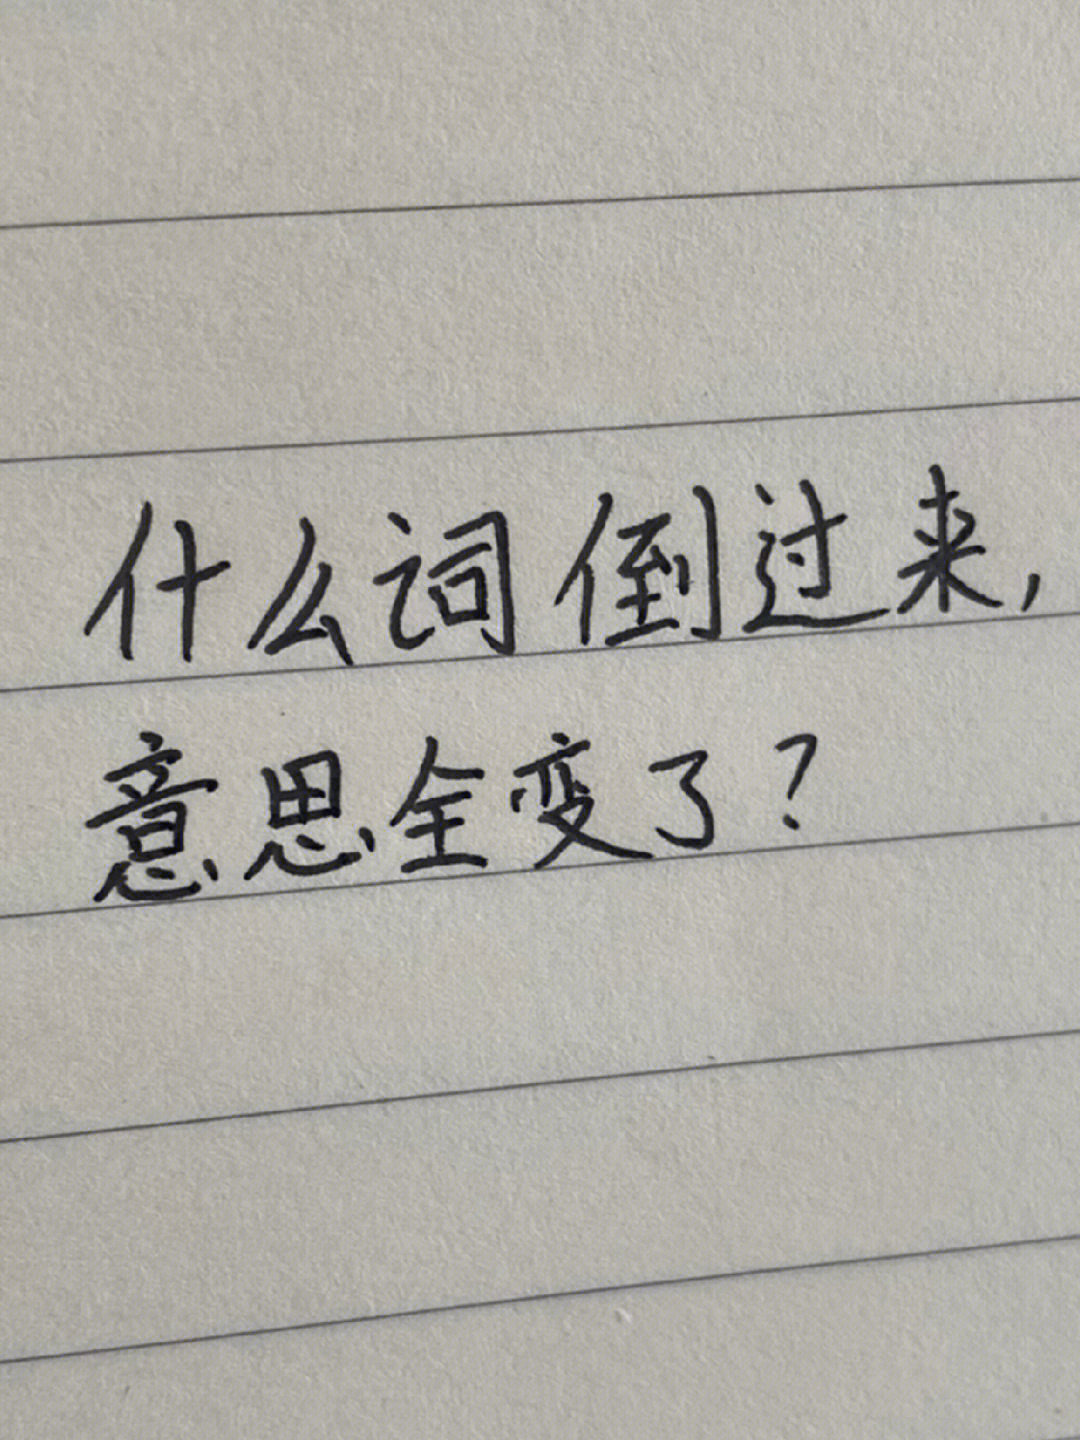 什么词倒过来，
意思全变了？